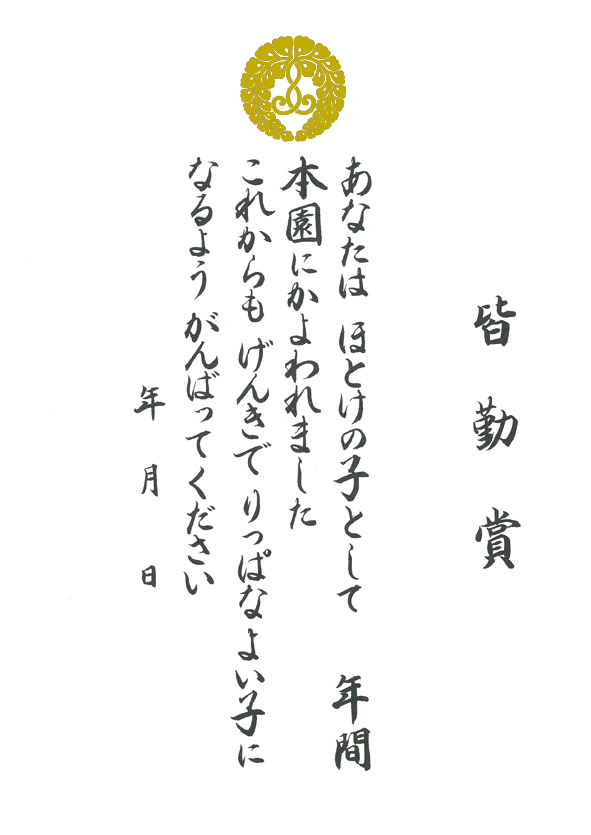 皆勤賞
あなたは ほとけの子として 年間
本園にかよわれました
これからも げんきで りっぱな よい子に
なるよう がんばってください
年 月 日